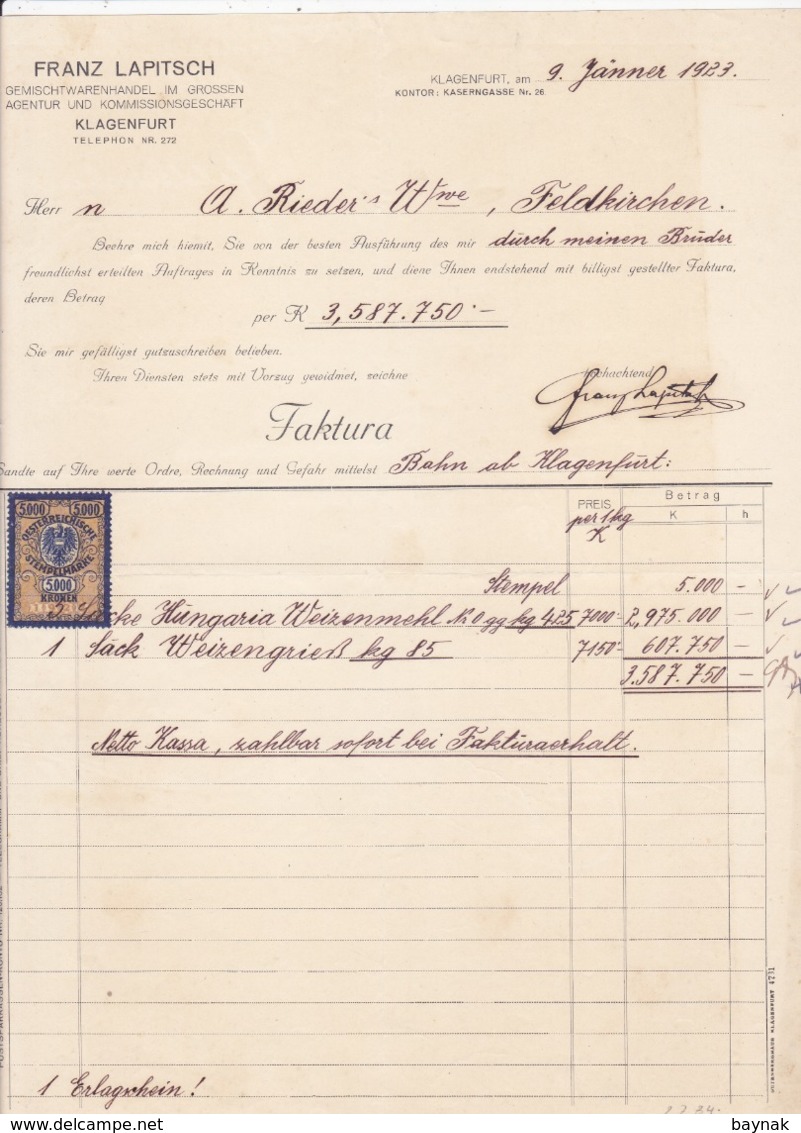 FRANZ LAPITSCH
GEMISCHTWARENHANDEL IM GROSSEN
AGENTUR UND KOMMISSIONSGESCHÄFT
KLAGENFURT
TELEPHON NR. 272
KLAGENFURT, am 9. Jänner 1923.
KONTOR: KASERNGASSE Nr. 26
Herr n A. Rieder's Wwe, Feldkirchen.
Beehre mich hiemit, Sie von der besten Ausführung des mir durch meinen Bruder
freundlichst erteilten Auftrages in Kenntnis zu setzen, und diene Ihnen endstehend mit billigst gestellter Faktura,
deren Betrag
per K 3,587.750·—
Sie mir gefälligst gutzuschreiben belieben.
Ihren Diensten stets mit Vorzug gewidmet, zeichne hochachtend
Franz Lapitsch
Faktura
Sandte auf Ihre werte Ordre, Rechnung und Gefahr mittelst Bahn ab Klagenfurt:
PREIS per 1 kg K
Betrag
K h
5.000 5.000
OESTERREICHISCHE
STEMPELMARKE
5.000
KRONEN
Stempel 5.000 —
Säcke Hungaria Weizenmehl Nr 0 gg kg 425 7000·- 2,975.000 —
1 Sack Weizengrieß kg 85 7150·- 607.750 —
3.587.750 —
Netto Kassa, zahlbar sofort bei Fakturaerhalt.
1 Erlagschein!
baynak